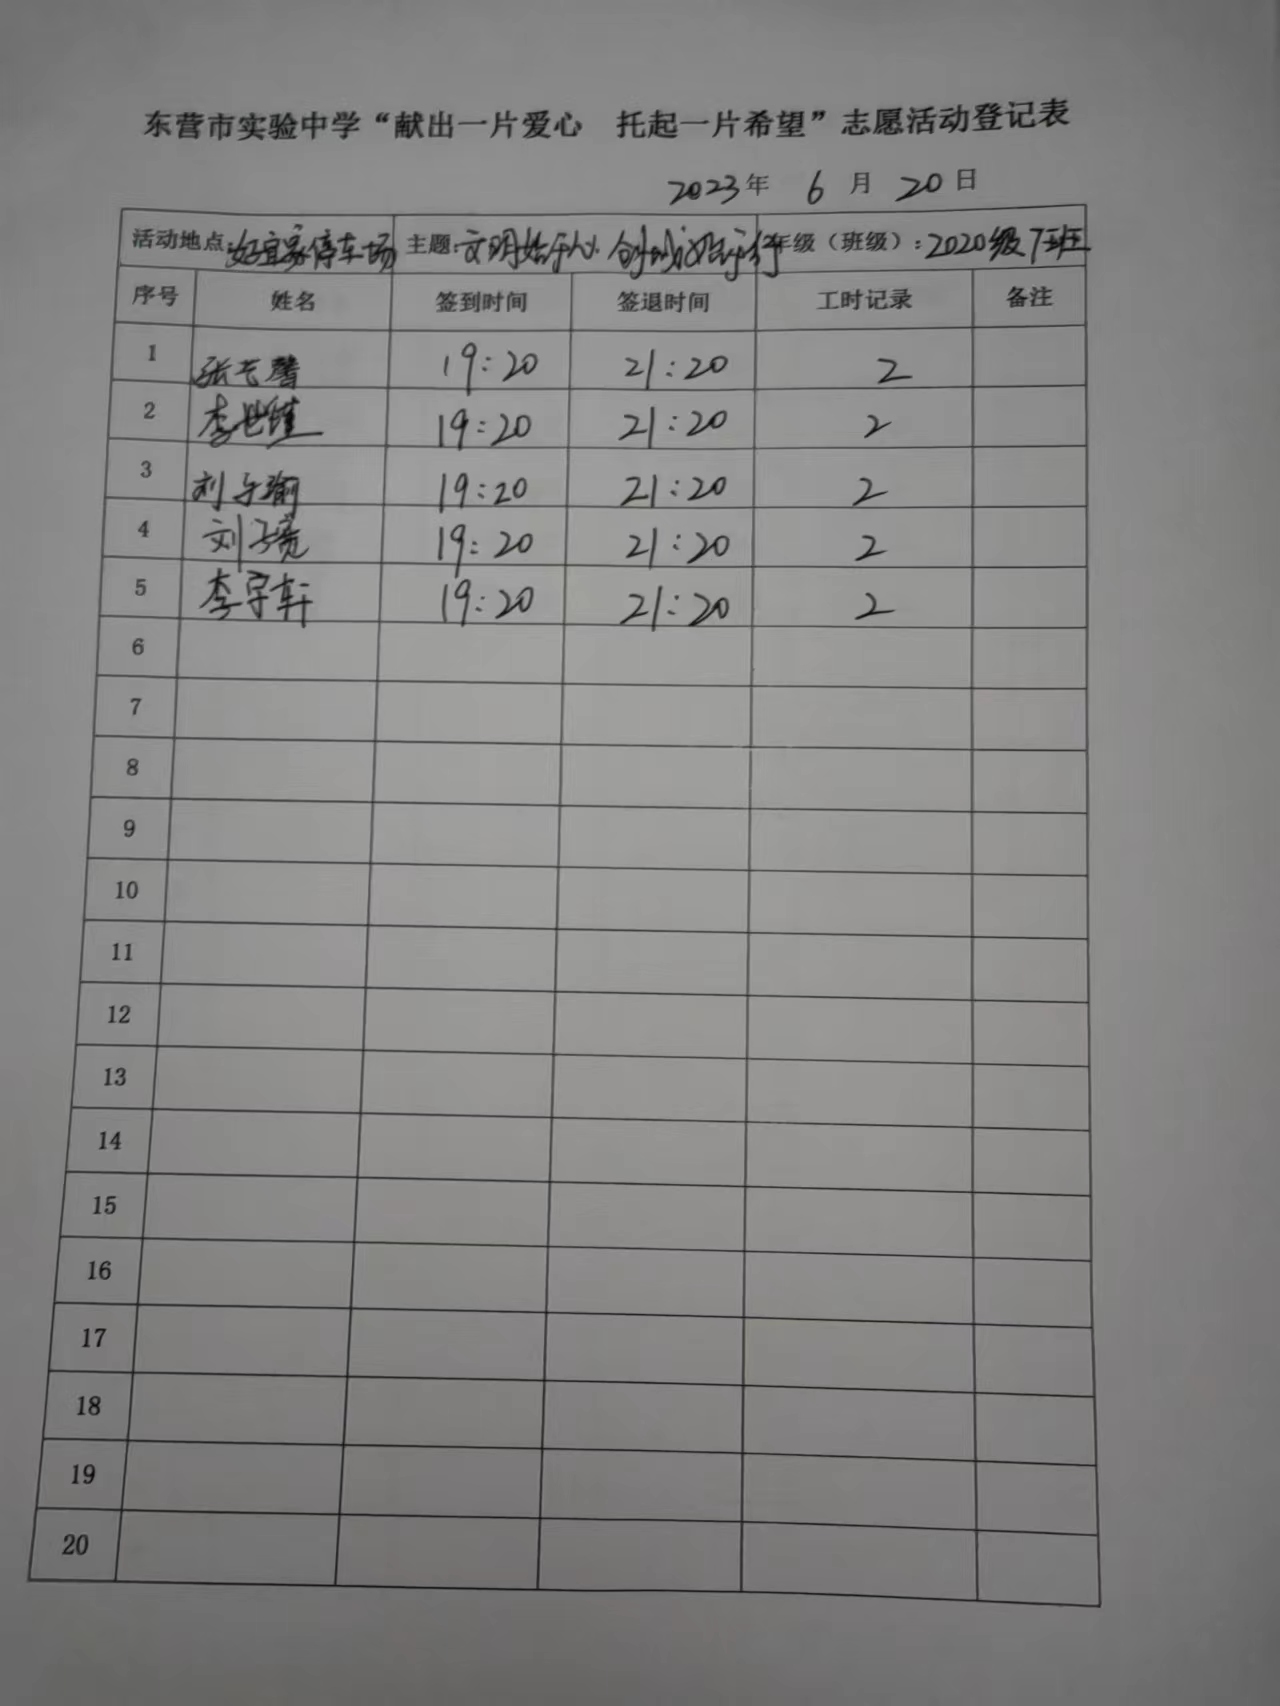 东营市实验中学“献出一片爱心 托起一片希望”志愿活动登记表
2023年 6月20日
活动地点:好宜家停车场 主题:文明始于心 创城始于行 年级（班级）:2020级7班
序号 姓名 签到时间 签退时间 工时记录 备注
1 张 馨 19:20 21:20 2
2 李世 19:20 21:20 2
3 刘子瑜 19:20 21:20 2
4 刘子亮 19:20 21:20 2
5 李宇轩 19:20 21:20 2
6
7
8
9
10
11
12
13
14
15
16
17
18
19
20